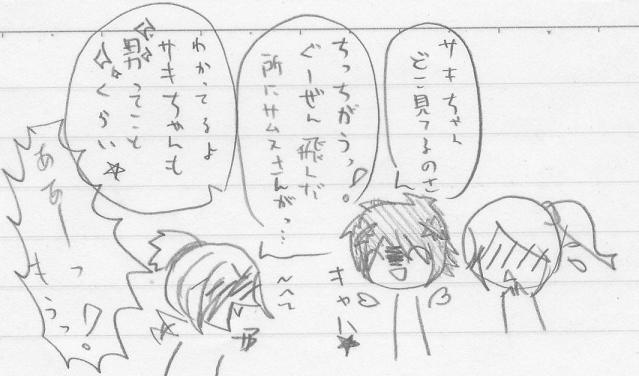 サキちゃん
どこ見てるのさ
ちっちがうっ!
ぐーぜん飛んだ
所にサムスさんがっ…
わかってるよ
サキちゃんも
男ってこと
くらい☆
あぁーっ
もうっ
キャハ★